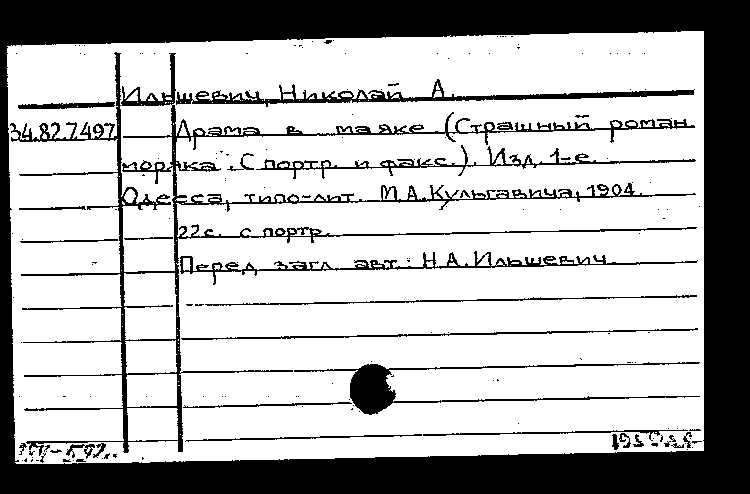 Ильшевич, Николай А.
34.82.7497 Драма в маяке (Страшный роман
моряка. С портр. и факс.). Изд. 1-е.
Одесса, типо-лит. М.А.Кульгавича, 1904.
22с. с портр.
Перед загл. авт.: Н.А.Ильшевич.